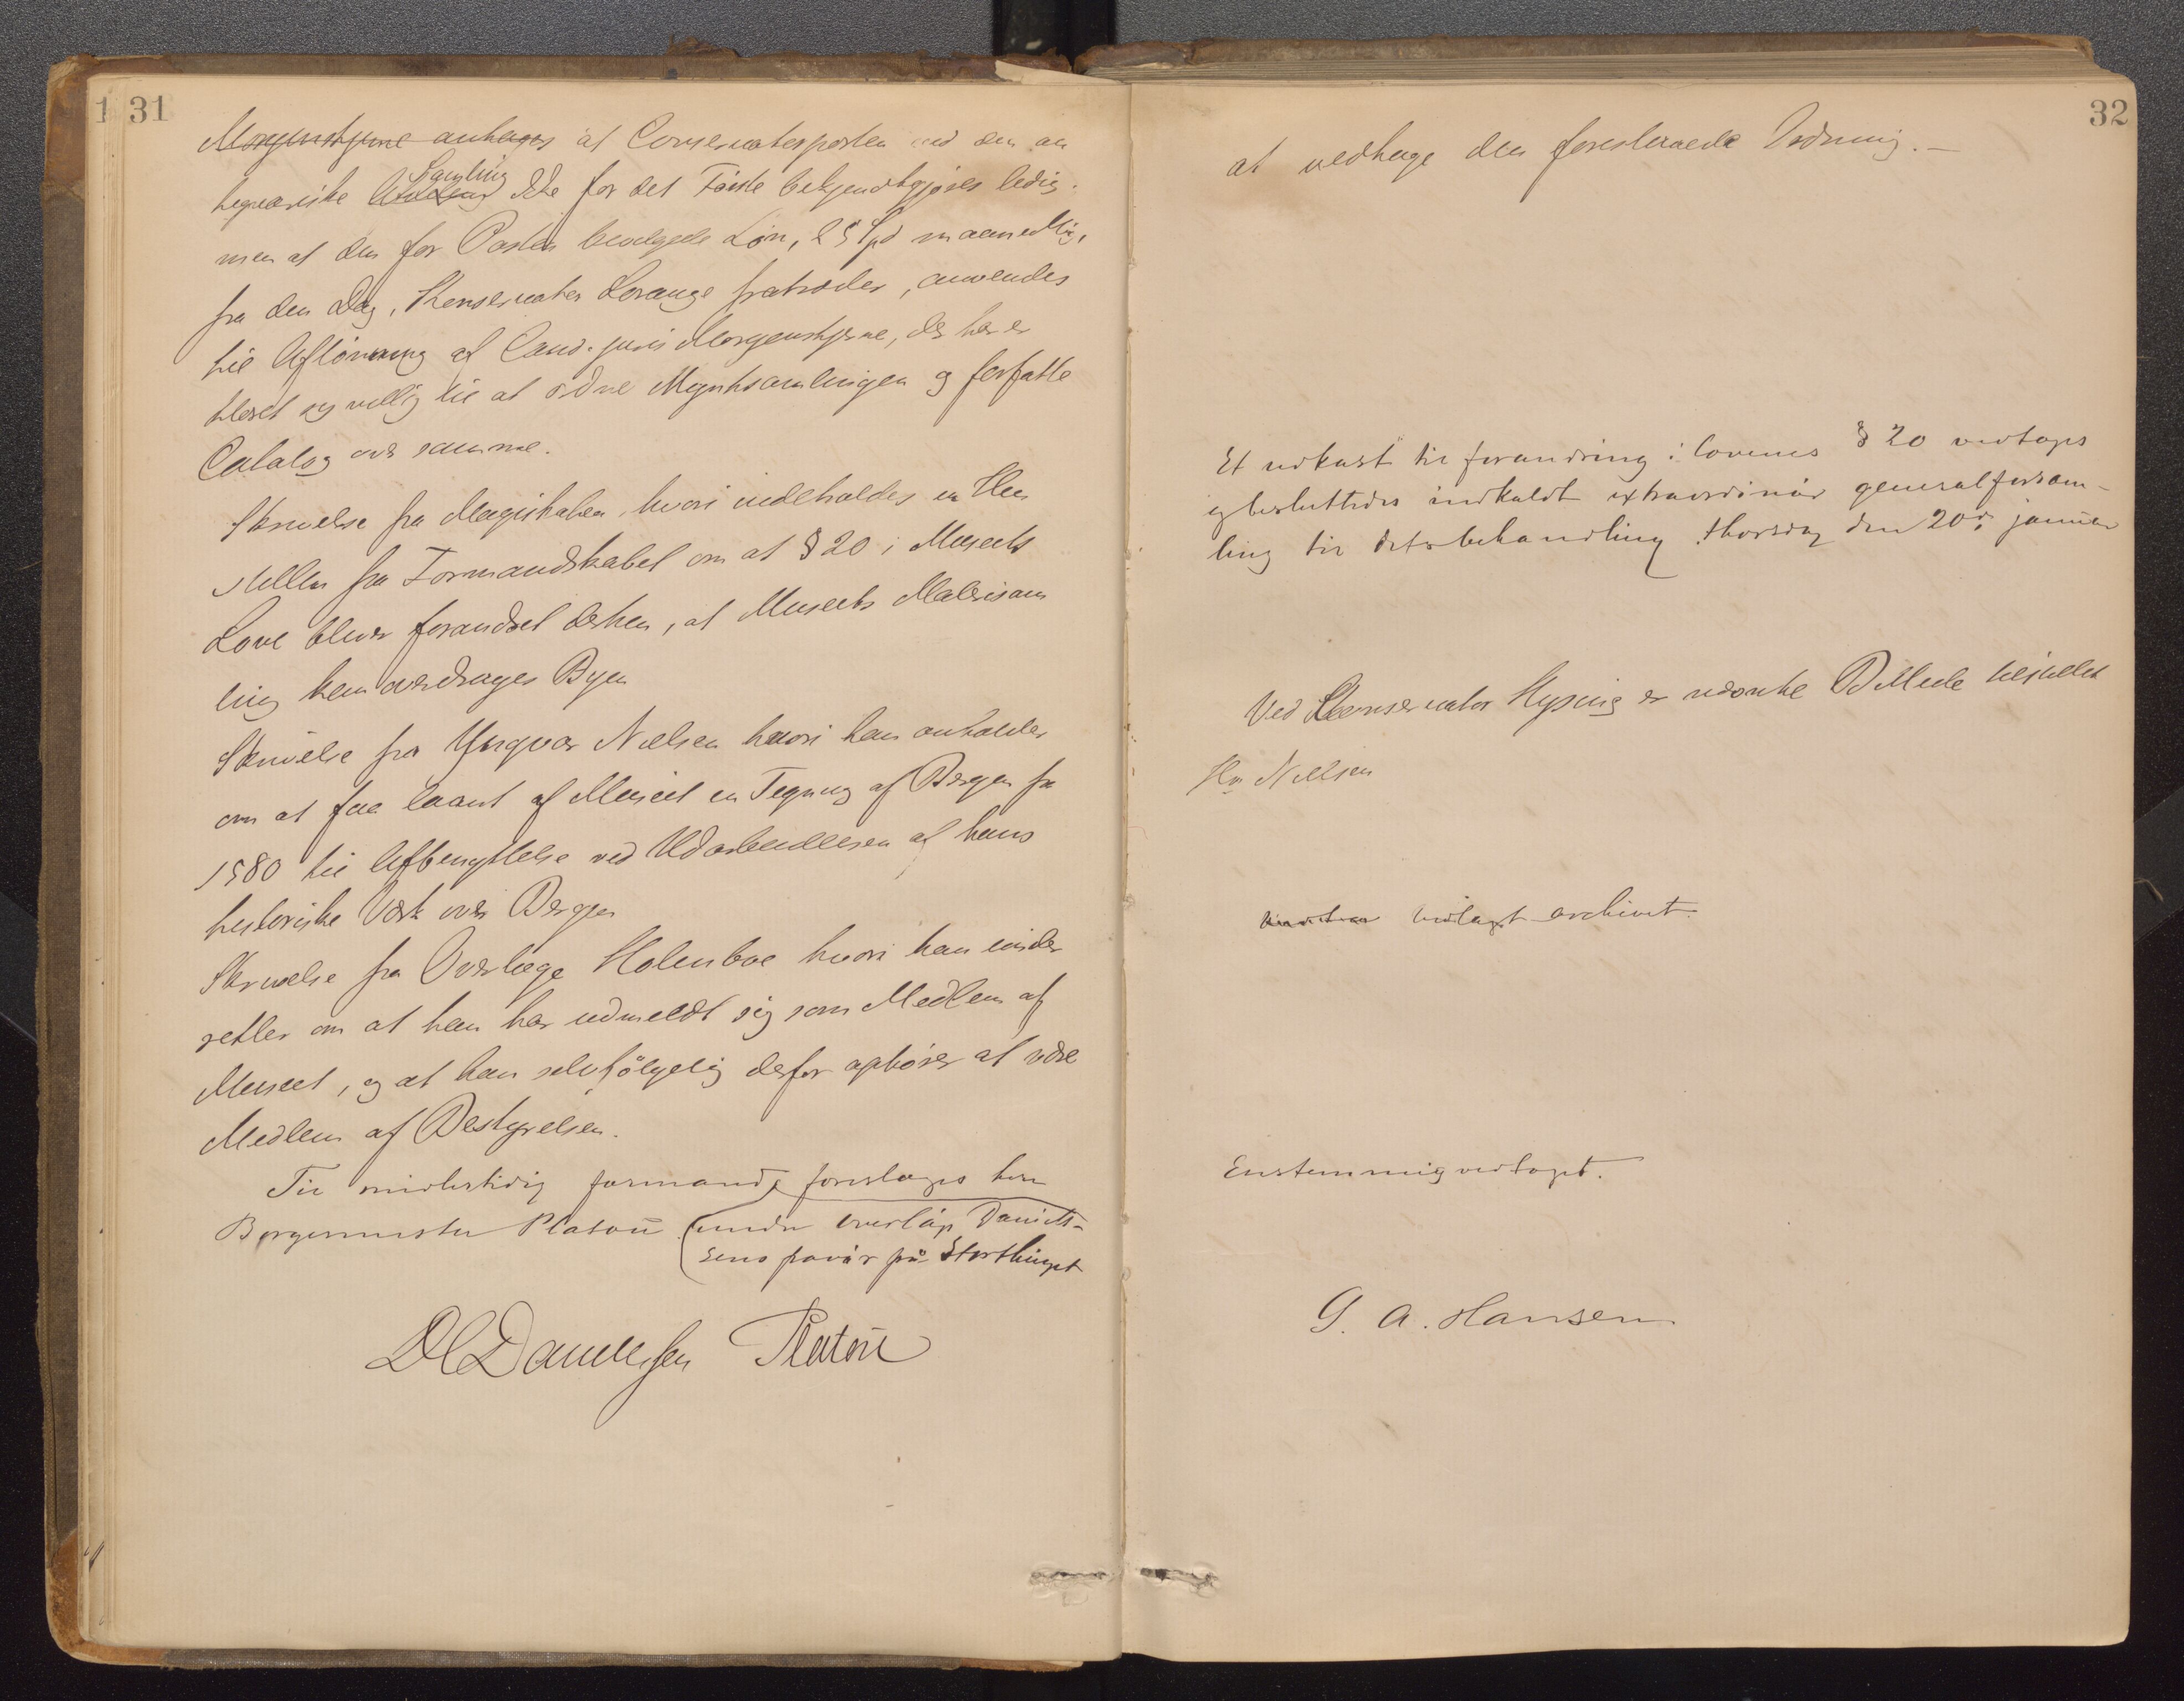 1 31
Morgenstjerne anhages at Conservatorposten ved den an
Samling
teqvariske Afdeling Ikke for det Første bekjendtgjøres ledig.
men at den for Posten bevilgede Løn, 25 Spd maanedlig,
fra den Dag, Konservator Lorange fratræder, anvendes
til Aflønning af Cand. juris Morgenstjerne, der har er
klæret sig villig til at ordne Myntsamlingen og forfatte
Catalog over samme.
Skrivelse fra Magistraten, hvori indeholdes en Hen
stillen fra Formandskabet om at § 20 i Museets
Love bliver forandret derhen, at Museets Malerisam
ling kan overdrages Byen
Skrivelse fra Yngvar Nielsen hvori han anholder
om at faa laant af Museet en Tegning af Bergen fra
1580 til Afbenyttelse ved Udarbeidelsen af hans
historiske Værk over Bergen
Skrivelse fra Overlæge Holmboe hvori han under
retter om at han har udmeldt sig som Medlem af
Museet, og at han selvfølgelig derfor ophører at være
Medlem af Bestyrelsen.
Til midlertidig formand foreslages herr
Borgermester Platou (under overlæge Daniels-
sens favær på Storthinget
DCDanielssen Platou
32
at vedtage den foreslaaede Ordning.-
Et udkast til forandring i lovenes § 20 vedtoges
og besluttedes indkaldt extraordinær generalforsam-
ling til dets behandling thorsdag den 20de januar
Ved Conservator Hysing er nævnte Billede tilstillet
Hr Nielsen
vedlagt archivet.
Enstemmig vedtaget.
G. A. Hansen